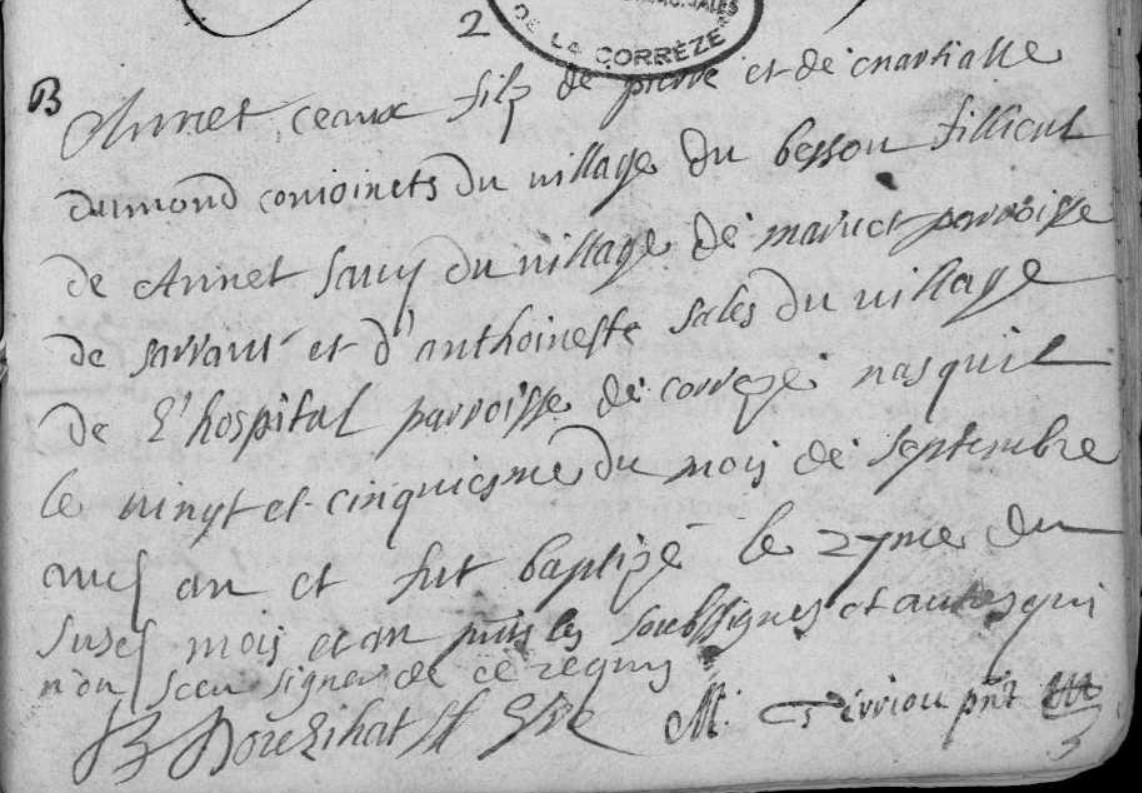 2
DE LA CORRÈZE
B
Annet ceaux filz de pierre et de martialle
dumond conioincts du village du besson fillieul
de Annet saury du village de parroisse
de sarrant et d'anthoinette sales du village
de l'hospital parroisse de correze nasquit
le vingt et cinquiesme du mois de septembre
an et fut baptizé le 27me du
susd mois et an pnts les soubsignes et autres qui
n'on sceu signer de ce requis
M. pnt